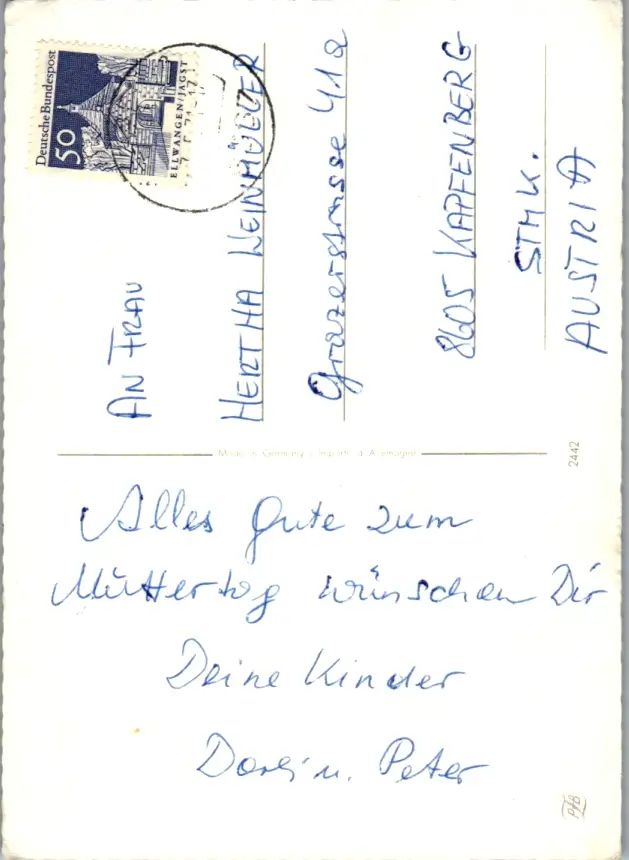 Alles gute zum
Muttertag wünschen Dir
Deine Kinder
u. Peter
Deutsche Bundespost
50
ELLWANGEN/JAGST
AN FRAU
HERTHA WEINMÜLLER
Grazerstrasse 41a
8605 KAPFENBERG
STMK.
AUSTRIA
Made in Germany
2442